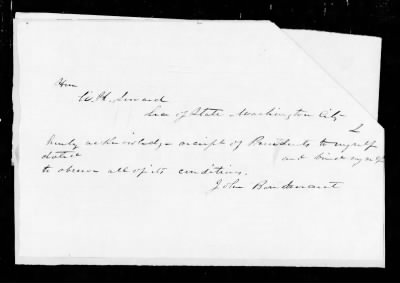 Hon
W. H. Seward
Sec of State Washington City
I
hereby acknowledge receipt of Presidents to myself
and bind myself
to observe all of its conditions.
John